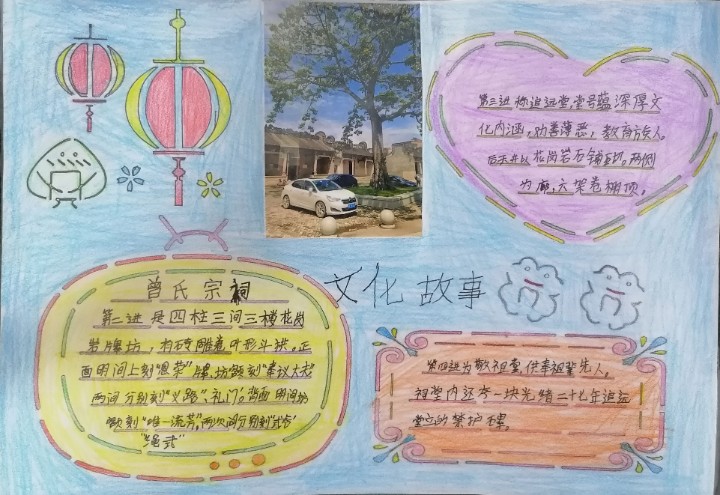 第三进称追远堂,堂号蕴深厚文
化内涵,劝善薄恶,教育族人。
后天井以花岗岩石铺砌。两侧
为廊,六架卷棚顶。
文化故事
曾氏宗祠
第二进是四柱三间三楼花岗
岩牌坊,均砖雕叶形斗拱。正
面明间上刻“恩荣”牌坊额刻“奉议大夫”
两间分别刻“义路”、礼门”。背面明间坊
额刻“唯一流芳”,两次间分别刻“式谷”
“绳武”
第四进为敬祖堂,供奉祖辈先人。
祖堂内还夯一块光绪二十七年追远
堂立的禁护碑。